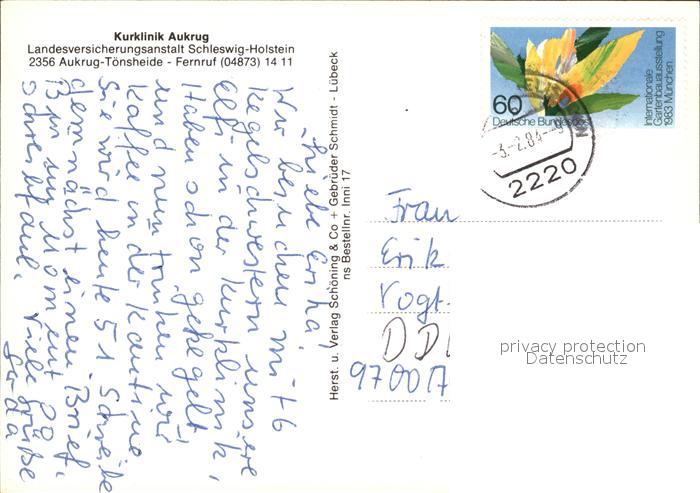 Kurklinik Aukrug
Landesversicherungsanstalt Schleswig-Holstein
2356 Aukrug-Tönsheide - Fernruf (04873) 14 11
Liebe Erika,
Wir besuchen mit 6
Kegelschwestern unsere
Elfi in der Kurklinik,
Haben schon gekegelt
und nun trinken wir
Kaffee in der Kantine
Sie wird heute 51 Schreibe
demnächst einen Brief.
Bin im Moment so
schreibfaul. Viele Grüße
Herst. u. Verlag Schöning & Co + Gebrüder Schmidt - Lübeck
ns Bestellnr. Inni 17
60
Deutsche Bundespost
Internationale
Gartenbauausstellung
1983 München
-3.-2.84-
2220
Frau
Erik
Vogt.
DD
9700 A
privacy protection
Datenschutz